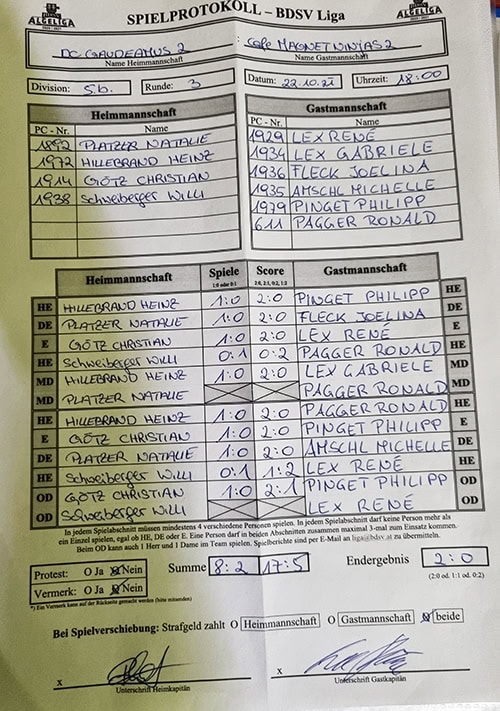 ALGELIGA SPIELPROTOKOLL – BDSV Liga ALGELIGA
DC GAUDEAMUS 2 Cafe MAGNET NINJAS 2
Name Heimmannschaft Name Gastmannschaft
Division: 5.b. Runde: 3 Datum: 22.10.21 Uhrzeit: 18:00
Heimmannschaft Gastmannschaft
PC - Nr. Name PC - Nr. Name
1892 PLATZER NATALIE 1929 LEX RENÉ
1972 HILLEBRAND HEINZ 1934 LEX GABRIELE
1914 GÖTZ CHRISTIAN 1936 FLECK JOELINA
1938 Schweiberger WILLI 1935 AMSCHL MICHELLE
1979 PINGET PHILIPP
611 PAGGER RONALD
Heimmannschaft Spiele Score Gastmannschaft
1:0 oder 0:1 2:0, 2:1, 0:2, 1:2
HE HILLEBRAND HEINZ 1:0 2:0 PINGET PHILIPP HE
DE PLATZER NATALIE 1:0 2:0 FLECK JOELINA DE
E GÖTZ CHRISTIAN 1:0 2:0 LEX RENÉ E
HE Schweiberger WILLI 0:1 0:2 PAGGER RONALD HE
MD HILLEBRAND HEINZ 1:0 2:0 LEX GABRIELE MD
MD PLATZER NATALIE PAGGER RONALD MD
HE HILLEBRAND HEINZ 1:0 2:0 PAGGER RONALD HE
E GÖTZ CHRISTIAN 1:0 2:0 PINGET PHILIPP E
DE PLATZER NATALIE 1:0 2:0 AMSCHL MICHELLE DE
HE Schweiberger WILLI 0:1 1:2 LEX RENÉ HE
OD GÖTZ CHRISTIAN 1:0 2:1 PINGET PHILIPP OD
OD Schweiberger WILLI LEX RENÉ OD
In jedem Spielabschnitt müssen mindestens 4 verschiedene Personen spielen. In jedem Spielabschnitt darf keine Person mehr als
ein Einzel spielen, egal ob HE, DE oder E. Eine Person darf in beiden Abschnitten zusammen maximal 3-mal zum Einsatz kommen.
Beim OD kann auch 1 Herr und 1 Dame im Team spielen. Spielberichte sind per E-Mail an liga@bdsv.at zu übermitteln.
Protest: O Ja O Nein Summe 8:2 17:5 Endergebnis 2:0
Vermerk: O Ja O Nein (2:0 od. 1:1 od. 0:2)
*) Ein Vermerk kann auf der Rückseite gemacht werden (bitte mitsenden)
Bei Spielverschiebung: Strafgeld zahlt O Heimmannschaft O Gastmannschaft O beide
x x
Unterschrift Heimkapitän Unterschrift Gastkapitän